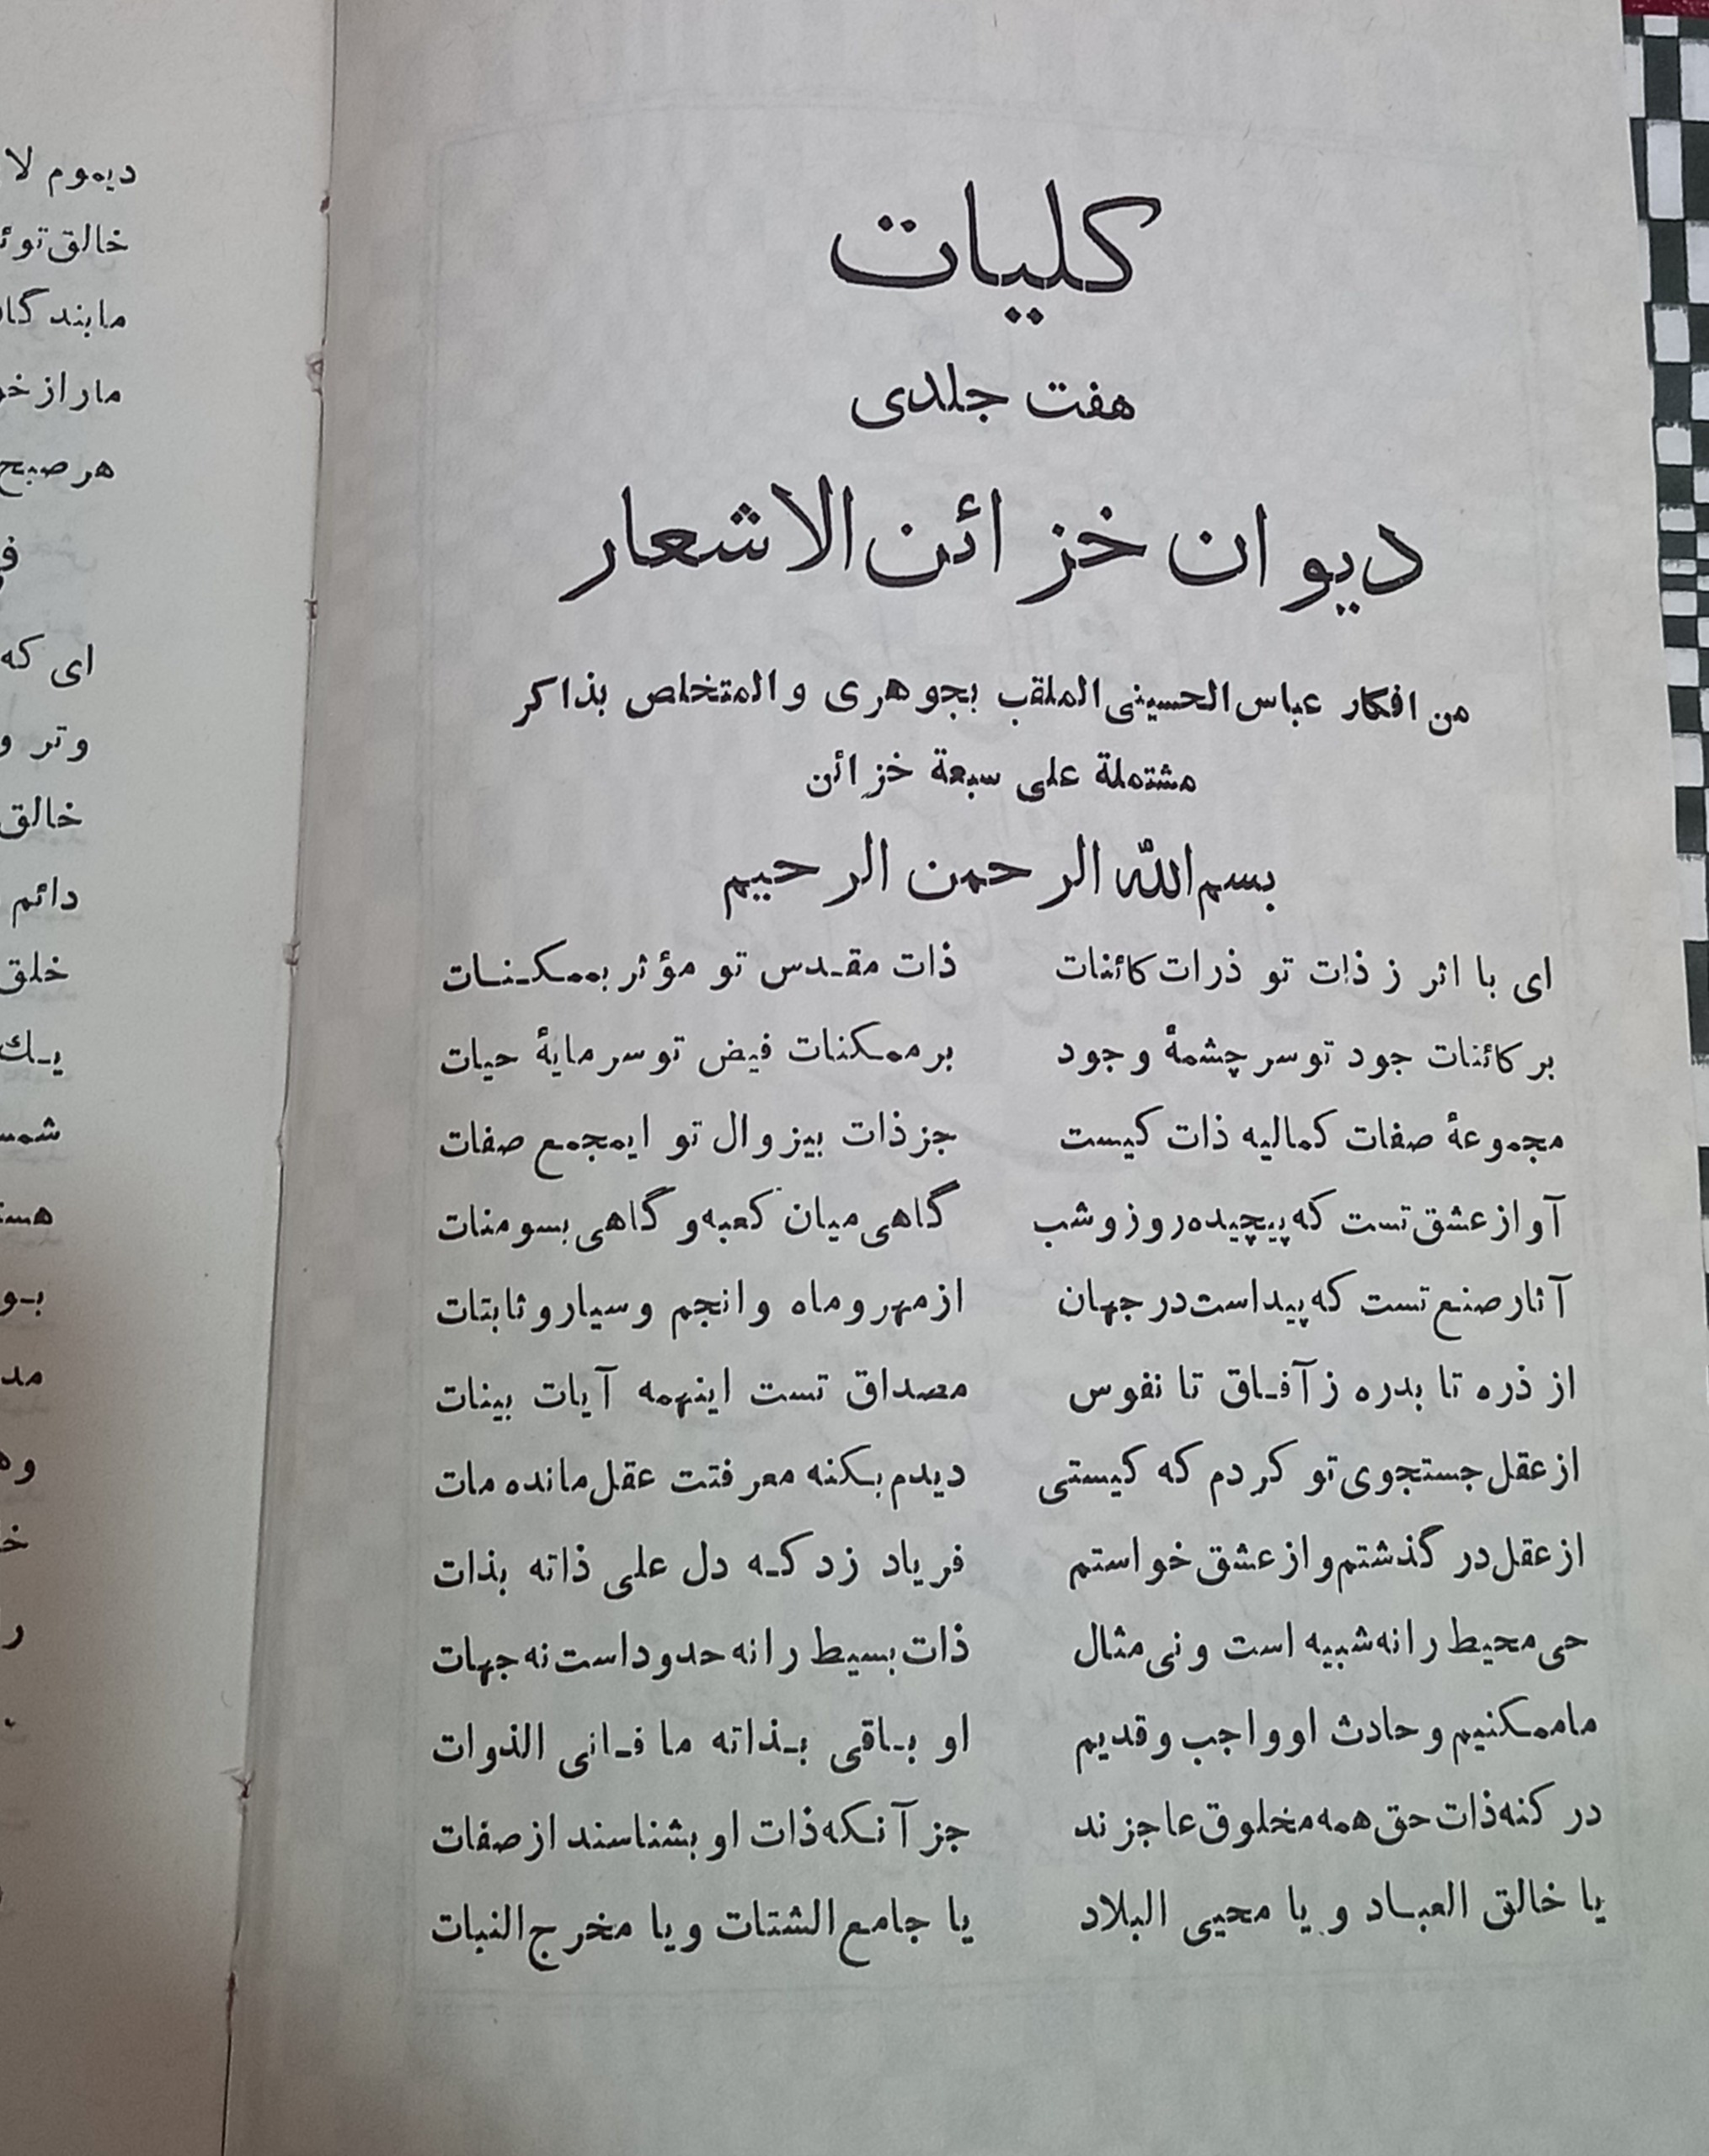 کلیات
هفت جلدی
دیوان خزائن الاشعار
من افکار عباس الحسینی الملقب بجوهری والمتخلص بذاکر
مشتملة علی سبعة خزائن
بسم الله الرحمن الرحیم
ای با اثر ز ذات تو ذرات کائنات ذات مقدس تو مؤثر بممکنات
بر کائنات جود تو سر چشمهٔ وجود بر ممکنات فیض تو سرمایهٔ حیات
مجموعهٔ صفات کمالیه ذات کیست جز ذات بیزوال تو ایمجمع صفات
آواز عشق تست که پیچیده روز و شب گاهی میان کعبه و گاهی بسومنات
آثار صنع تست که پیداست در جهان از مهر و ماه و انجم و سیار و ثابتات
از ذره تا بدره ز آفاق تا نفوس مصداق تست اینهمه آیات بینات
از عقل جستجوی تو کردم که کیستی دیدم بکنه معرفتت عقل مانده مات
از عقل در گذشتم و از عشق خواستم فریاد زد که دل علی ذاته بذات
حی محیط را نه شبیه است و نی مثال ذات بسیط را نه حدود است نه جهات
ما ممکنیم و حادث او واجب و قدیم او باقی بذاته ما فانی الذوات
در کنه ذات حق همه مخلوق عاجزند جز آنکه ذات او بشناسند از صفات
یا خالق العباد و یا محیی البلاد یا جامع الشتات و یا مخرج النبات
دیموم لا
خالق
ما بند
مار از
هر صبح
ای که
و تر و
خالق
دائم
خلق
یک